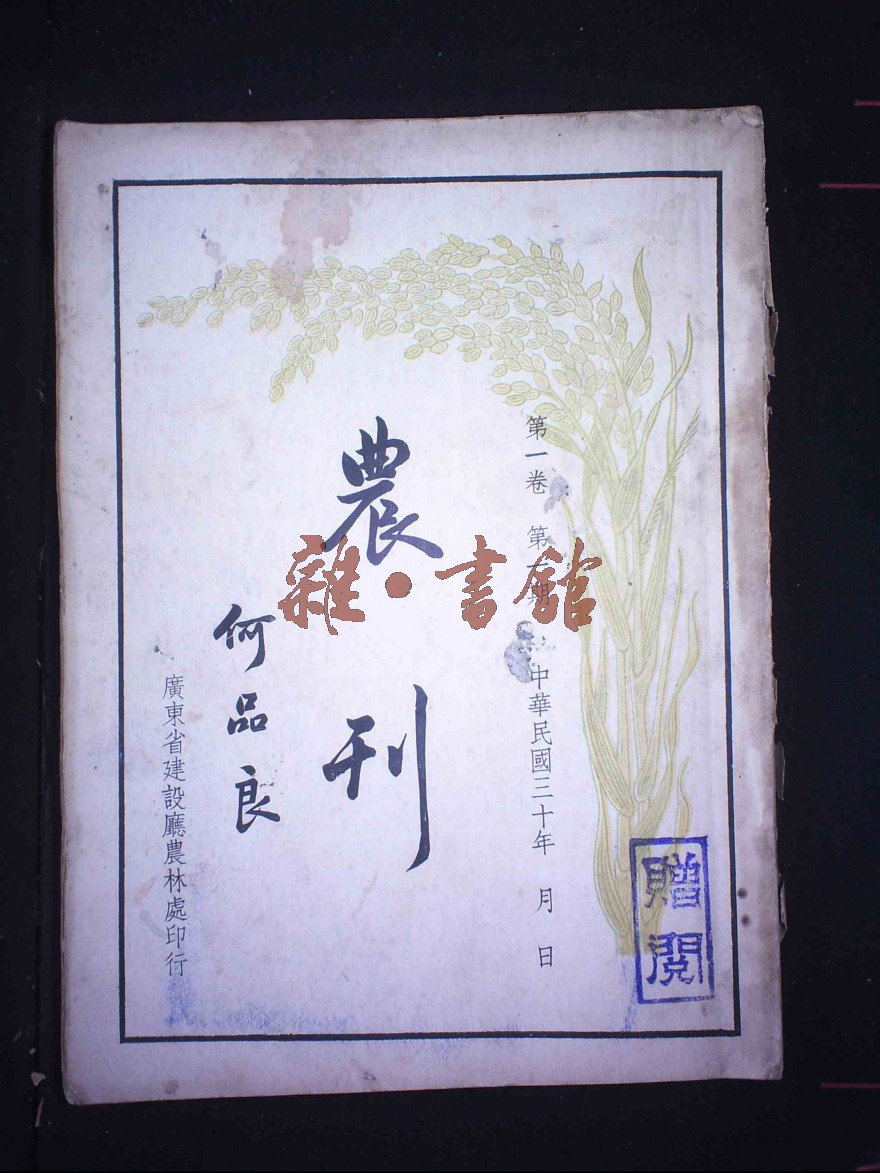 第一卷 第一期 中華民國三十年 月 日
農刊
何品良
廣東省建設廳農林處印行
贈閱
雜·書館